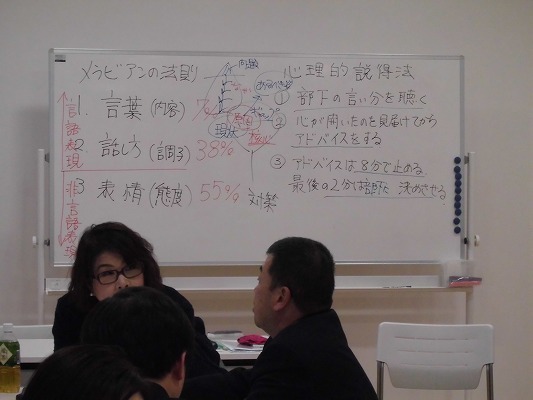 メラビアンの法則
言語表現
1. 言葉 (内容) 7
2 話し方 (調子) 38%
3 表情 (態度) 55%
非言語表現
問題
現状
対策
心理的説得法
① 部下の言い分を聴く
② 心が開いたのを見届けてから
アドバイスをする
③ アドバイスは8分で止める
最後の2分は部下に決めさせる